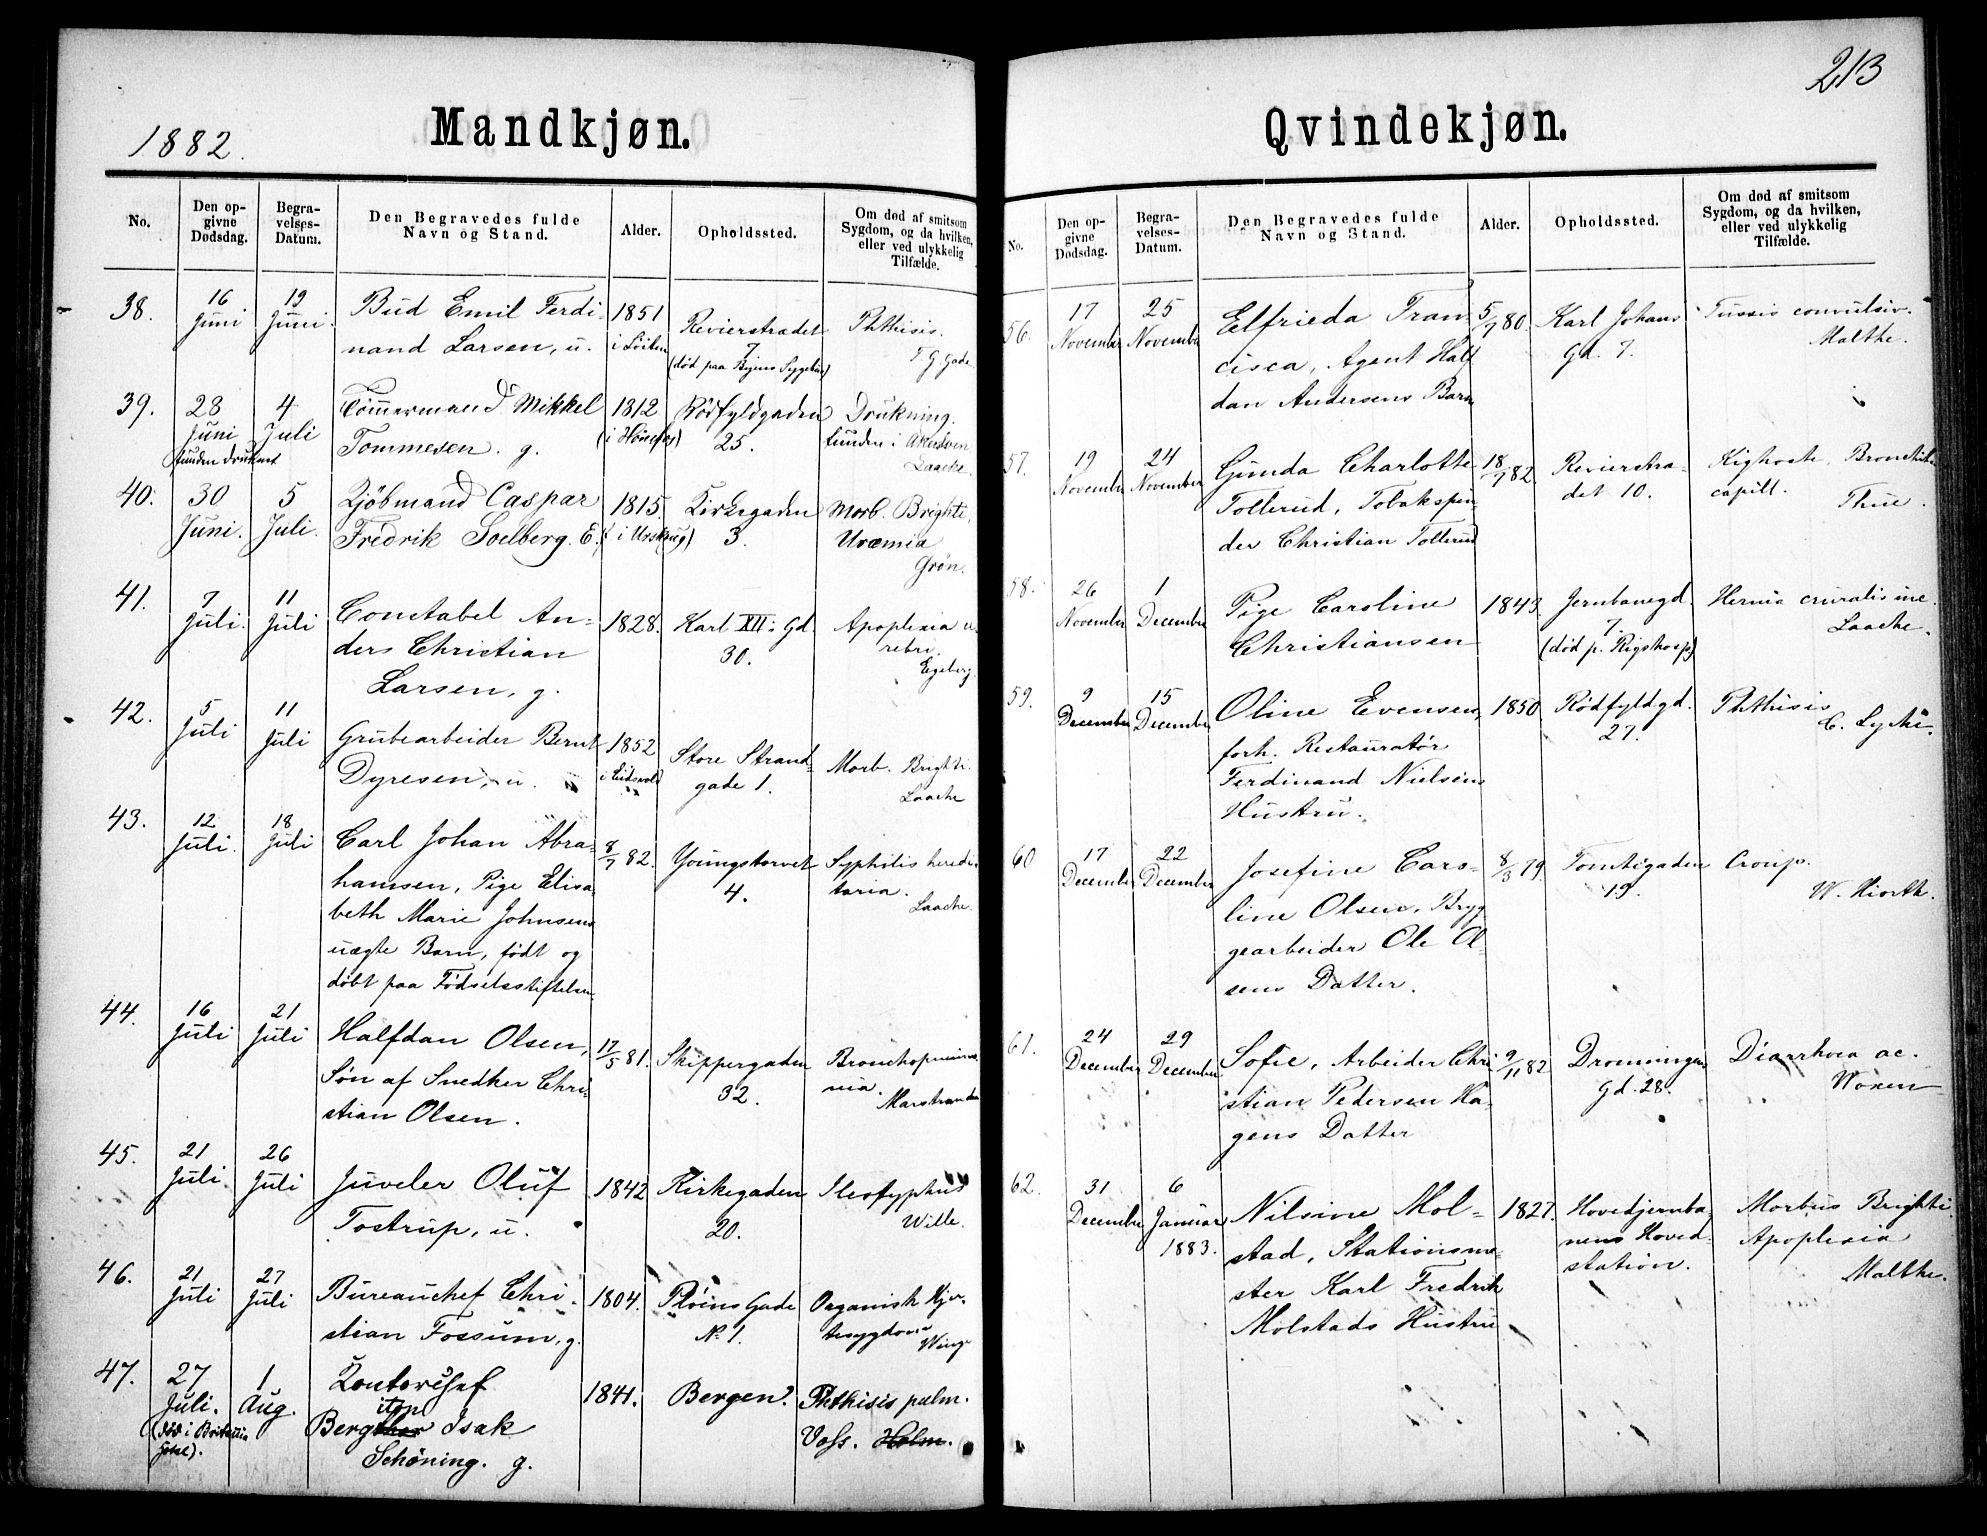 213
1882.
Mandkjøn.
No.
Den op-
givne
Dødsdag.
Begra-
velses-
Datum.
Den Begravedes fulde
Navn og Stand.
Alder.
Opholdssted.
Om død af smitsom
Sygdom, og da hvilken,
eller ved ulykkelig
Tilfælde.
38. 16 Juni 19 Juni.
Bud Emil Ferdi-
nand Larsen, u.
1851
i Löiten
Revierstrædet
7
(död paa Byens Sygehus)
Phthisis.
F G Gade
39. 28 Juni
funden druknet
4 Juli
Tömmermand Mikkel
Tommesen. g.
1812
(i Hönefos)
Rödfyldgaden
25.
Drukning.
funden i Akerselven
Laache.
40. 30 Juni. 5 Juli.
Kjöbmand Caspar
Fredrik Soelberg. E.
1815
(i Urskoug)
Kirkegaden
3.
Morb. Brighti,
Uræmia
Grön.
41. 7 Juli. 11 Juli
Constabel An-
ders Christian
Larsen, g.
1828.
Karl XII: Gd.
30.
Apoplexia ce
rebri.
Egeberg
42. 5 Juli 11 Juli
Grubearbeider Bernt
Dyresen, u.
1852
i Eidsvold
Store Strand-
gade 1.
Morb. Brighti.
Laache
43. 12 Juli. 18 Juli
Carl Johan Abra-
hamsen, Pige Elisa-
beth Marie Johnsens
uægte Barn, födt og
döbt paa Födselsstiftelsen
8/7 82.
Youngstorvet
4.
Syphilis heredi-
taria.
Laache.
44. 16 Juli 21 Juli
Halfdan Olsen,
Sön af Snedker Chri-
stian Olsen.
17/5 81.
Skippergaden
32.
Bronchopneumo-
nia.
Marstrander
45. 21 Juli. 26 Juli
Juveler Oluf
Tostrup, u.
1842
Kirkegaden
20.
Ileotyphus
Wille.
46. 21 Juli 27 Juli
Bureauchef Chri-
stian Fossum, g.
1804.
Plöens Gade
No 1.
Organisk Hjer-
tesygdom
Winge
47. 27 Juli.
(död i Britannia
Hotel).
1 Aug.
Kontorchef
iton
Bergther Isak
Schöning. g.
1841.
Bergen.
Phthisis pulm.
Voss. Holm.
Qvindekjøn.
No.
Den op-
givne
Dødsdag.
Begra-
velses-
Datum.
Den Begravedes fulde
Navn og Stand.
Alder.
Opholdssted.
Om død af smitsom
Sygdom, og da hvilken,
eller ved ulykkelig
Tilfælde.
56. 17 November 25 November
Elfrieda Fran-
cisca, Agent Half
dan Andersens Barn
5/7 80.
Karl Johans
Gd. 7.
Tussis convulsiv.
Malthe.
57. 19 November 24 November
Gunda Charlotte
Tollerud, Tobakspin
der Christian Tollerud
18/7 82.
Revierstræ-
det 10.
Kighoste, Bronchitis
capill.
Thue.
58. 26 November 1 December
Pige Caroline
Christiansen
1843.
Jernbanegd.
7.
(död p. Rigshosp)
Hernia cruralis inc.
Laache.
59. 9 December 15 December
Oline Evensen,
forh. Restauratör
Ferdinand Nielsens
Hustru.
1850
Rödfyldgd.
27.
Phthisis
C. Lyche.
60 17 December 22 December
Josefine Caro-
line Olsen, Bryg
gearbeider Ole Ol-
sens Datter.
8/3 79
Tomtegaden
19.
Croup.
W. Hiorth.
61. 24 December 29 December
Sofie, Arbeider Chri
stian Pedersen Ha-
gens Datter
9/11 82
Dronningens
Gd. 28.
Diarrhoea ac.
Woxen
62. 31 December 6 Januar
1883.
Nilsine Mol-
stad, Stationsme-
ster Karl Fredrik
Molstads Hustru
1827.
Hovedjernba
nens Hoved-
station.
Morbus Brighti
Apoplexia
Malthe.